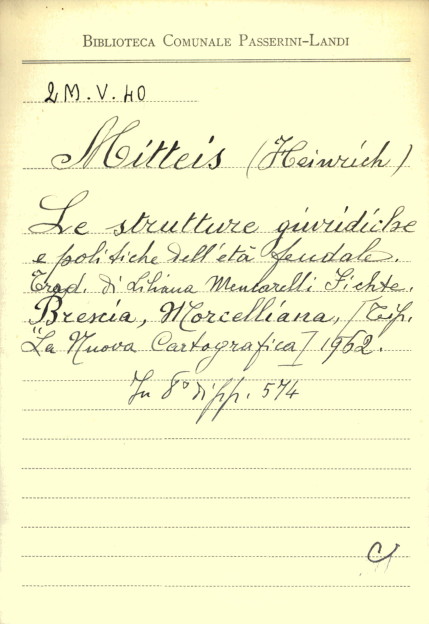 BIBLIOTECA COMUNALE PASSERINI-LANDI
2M.V.40
Mitteis (Heinrich)
Le strutture giuridiche
e politiche dell'età feudale.
Trad. di Liliana Mencarelli Fichte.
Brescia, Morcelliana, [Tip.
"La Nuova Cartografica] 1962.
In 8° di pp. 574